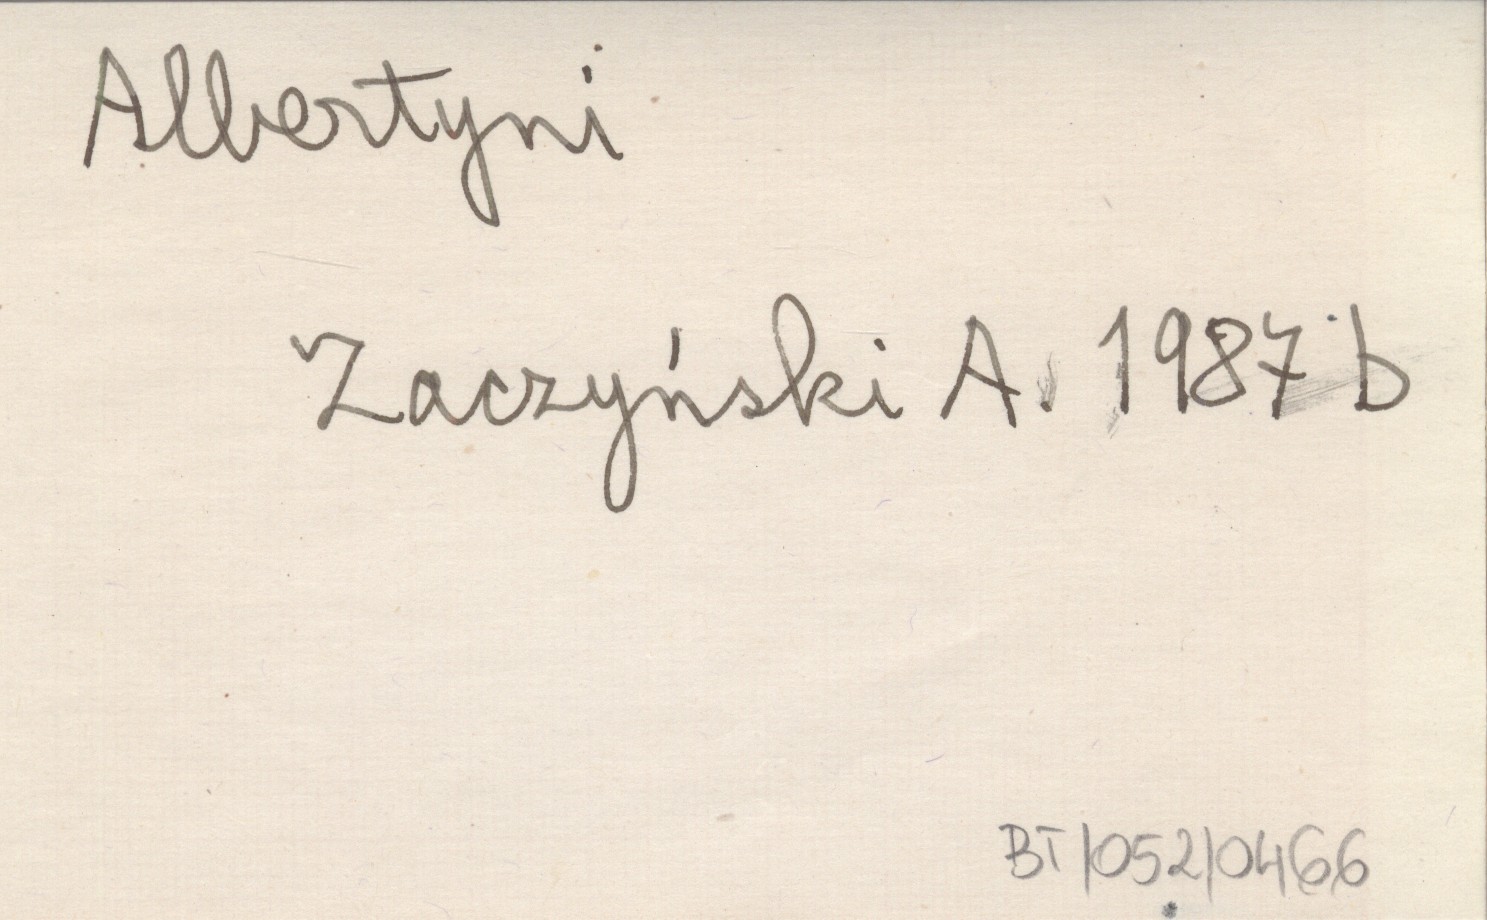 Albertyni
Zaczyński A. 1987 b
BT/052/0466